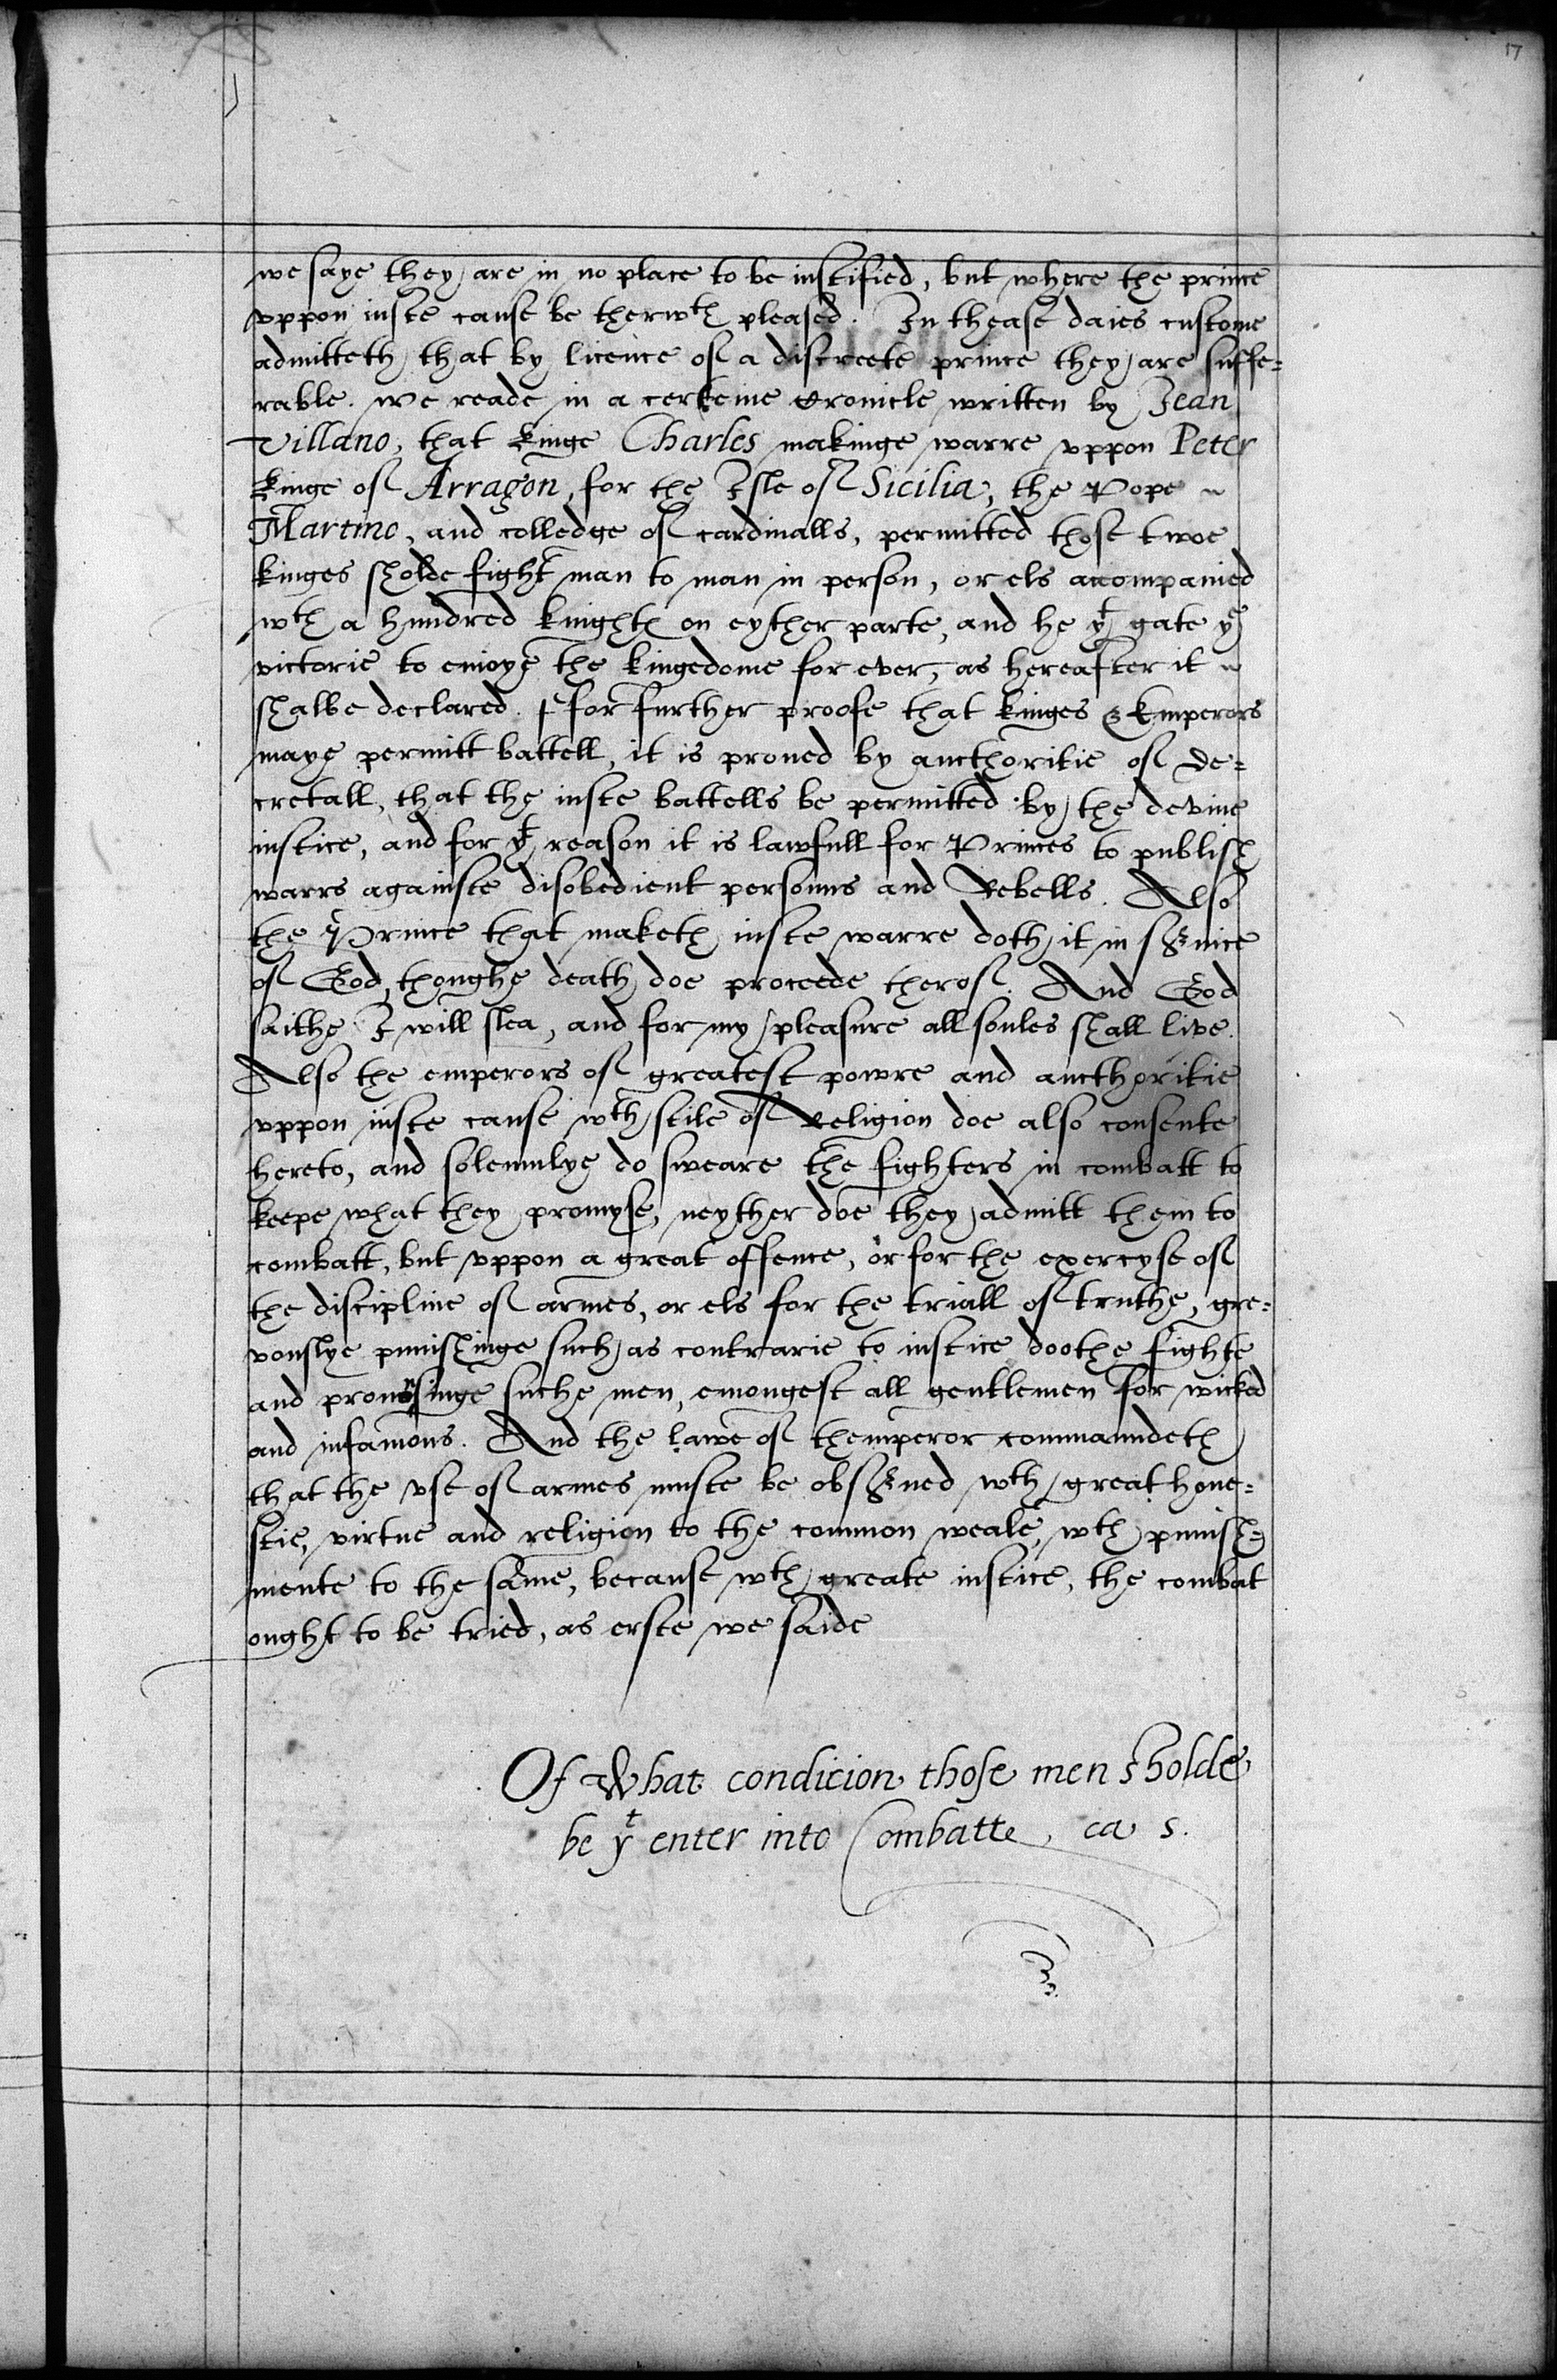 17
we saye they are in no place to be iustified, but where the prince
vppon iuste cause be therwth pleased. In thease daies custome
admitteth that by licence of a discreete prince they are suffe=
rable. We reade in a certeine Cronicle written by Jean
Villano, that Kinge Charles makinge warre vppon Peter
Kinge of Arragon, for the Isle of Sicilia, the Pope
Martino, and colledge of cardinalls, permitted those twoe
kinges sholde fight man to man in person, or els accompanied
wth a hundred knightes on eyther parte, and he yt gate ye
victorie to enioye the kingedome for ever, as hereafter it
shalbe declared. ffor further proofe that kinges & Emperors
maye permitt battell, it is proued by aucthoritie of De=
cretall, that the iuste battells be permitted by the devine
iustice, and for yt reason it is lawfull for Princes to publish
warrs againste disobedient personns and Rebells. Also
the Prince that maketh iuste warre doth it in seruice
of God, thoughe death doe proceede therof. And God
saithe I will slea, and for my pleasure all soules shall live.
Also the emperors of greatest powre and aucthoritie
vppon iuste cause wth stile of Religion doe also consente
hereto, and solemnlye do sweare the fighters in combatt to
keepe what they promyse, neyther doe they admitt them to
combatt, but vppon a great offence, or for the exercyse of
the discipline of armes, or els for the triall of truthe, gre=
vouslye punishinge such as contrarie to iustice doothe fighte
and pronounsinge suche men, emongest all gentlemen for wicked
and infamous. And the lawe of themperor commaundeth
that the vse of armes muste be obserued wth great hone=
stie, virtue and religion to the common weale, wth punish=
mente to the same, because wth greate iustice, the combat
ought to be tried, as erste we saide
Of What condicion those men sholde
be yt enter into Combatte, ca 5.